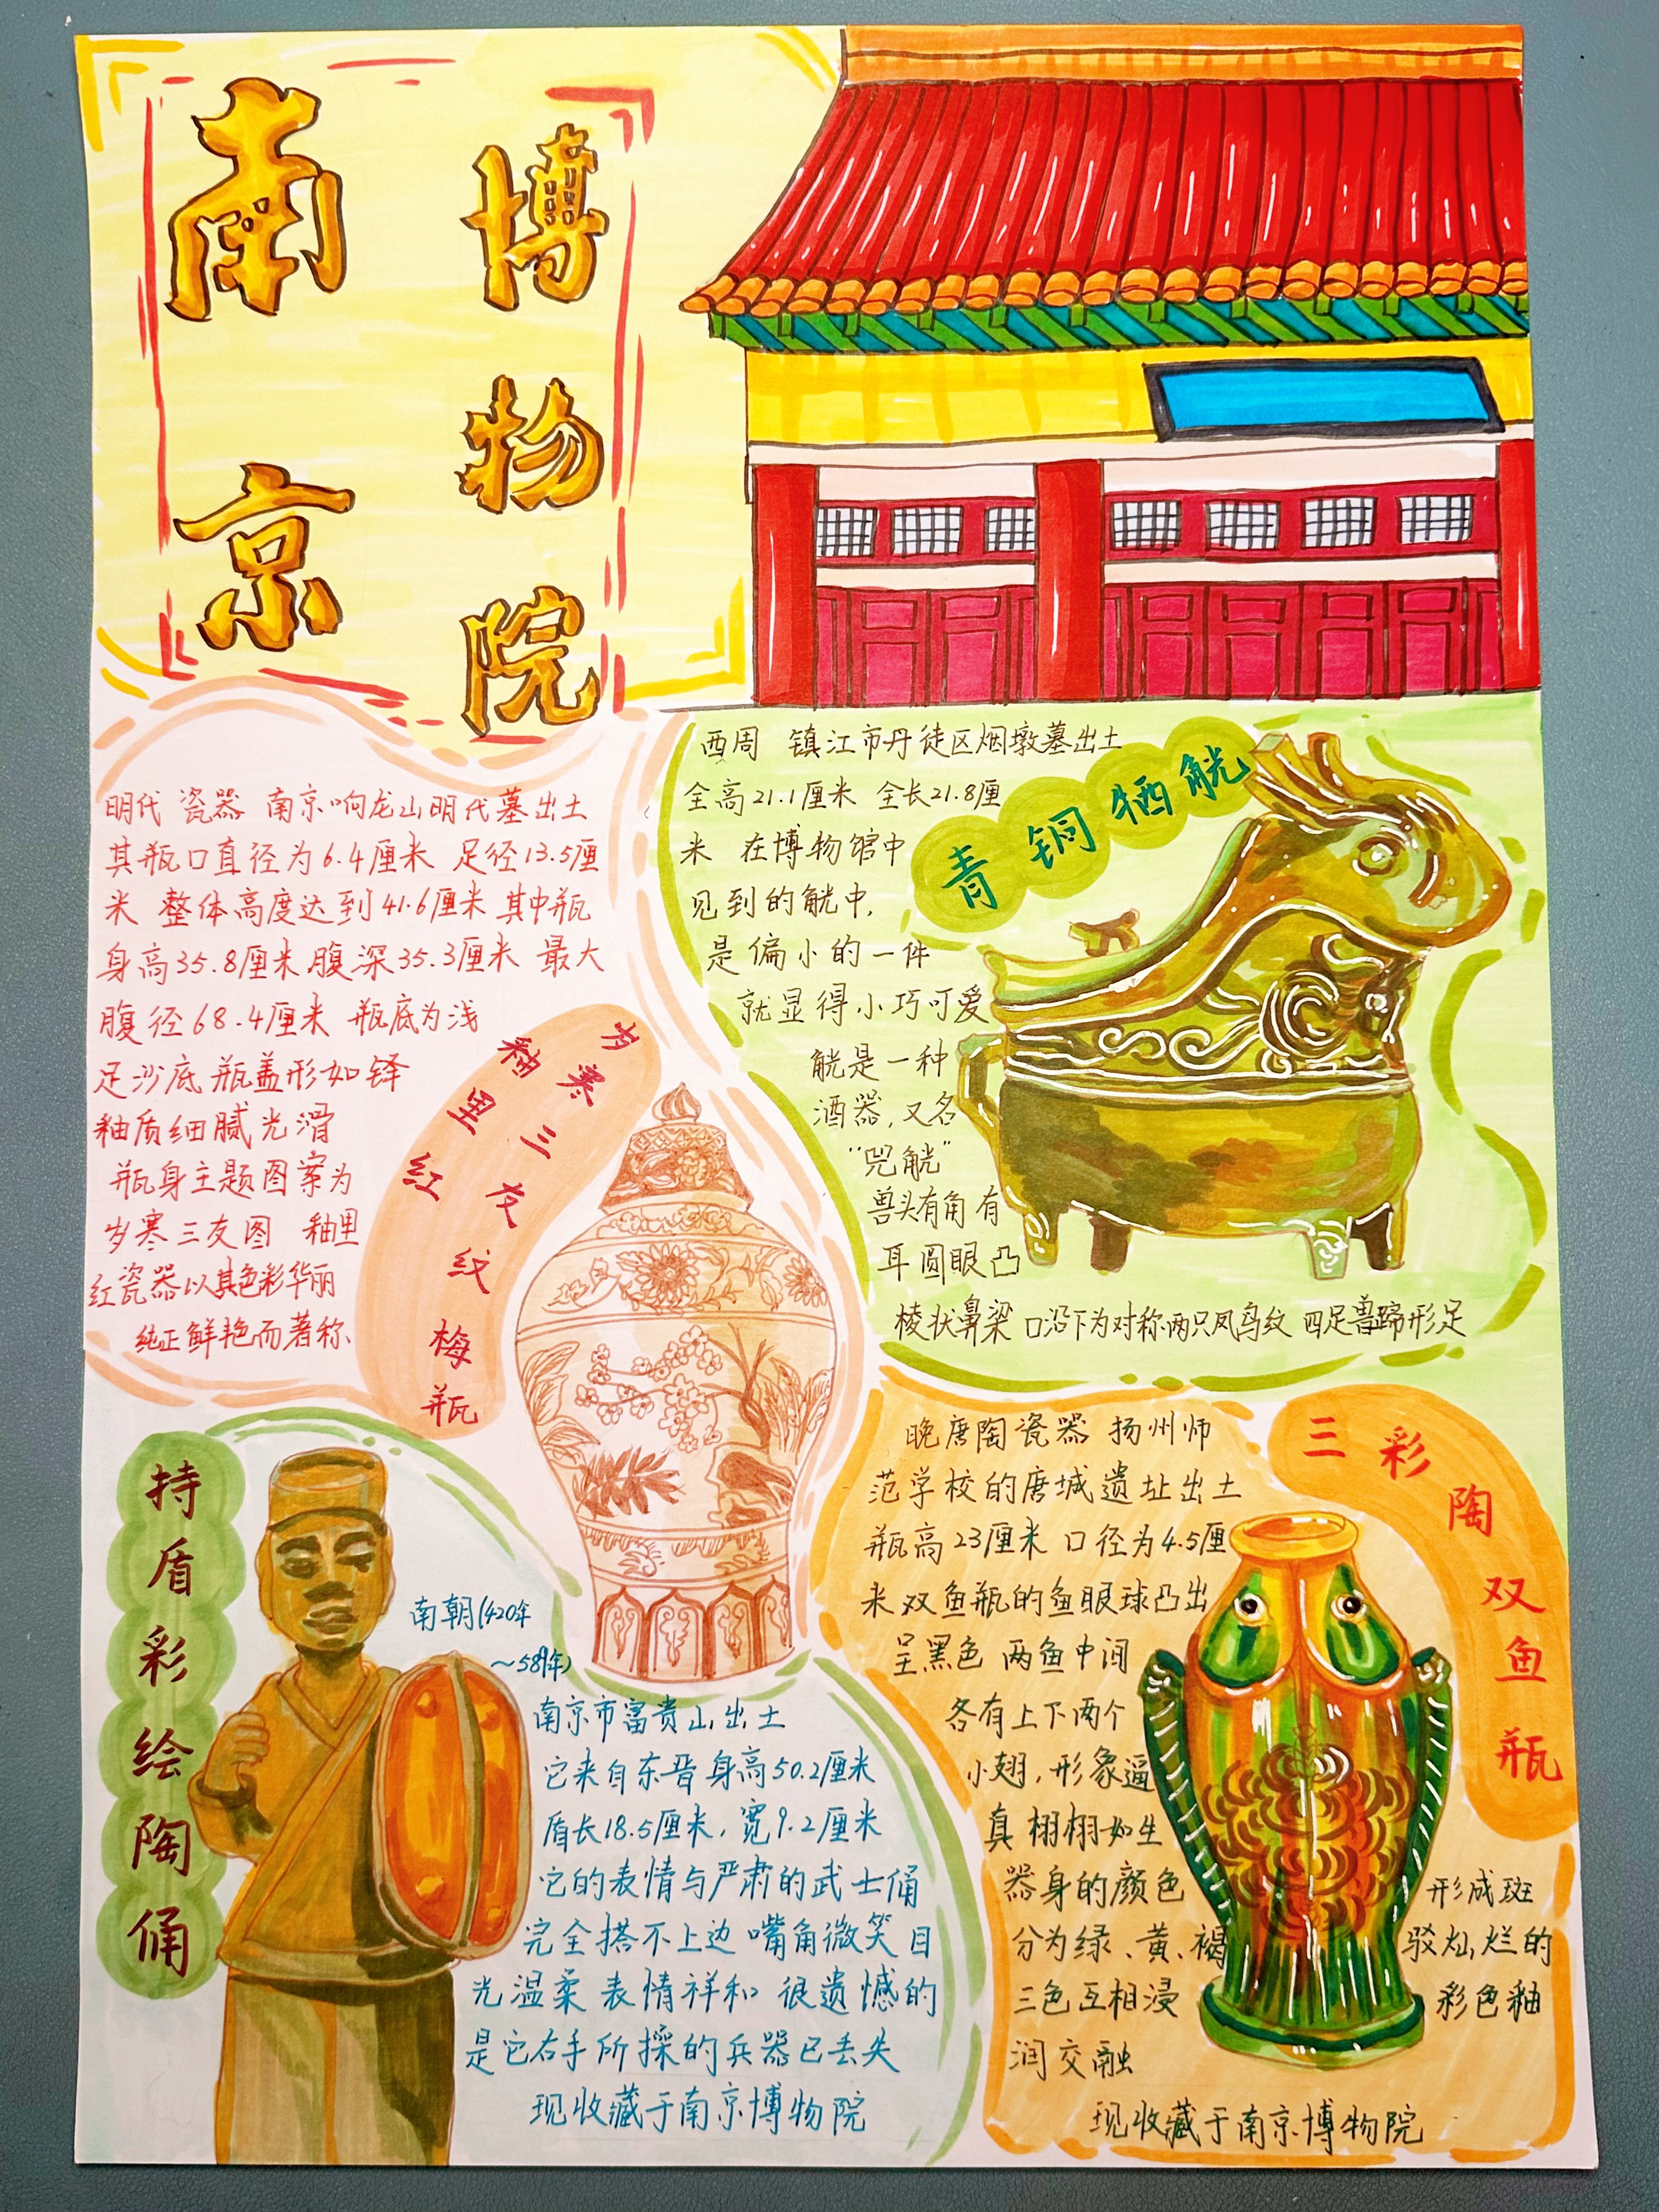 南京
博物院
明代 瓷器 南京响龙山明代墓出土
其瓶口直径为6.4厘米 足径13.5厘
米 整体高度达到41.6厘米 其中瓶
身高35.8厘米 腹深35.3厘米 最大
腹径68.4厘米 瓶底为浅
足沙底 瓶盖形如铎
釉质细腻光滑
瓶身主题图案为
岁寒三友图 釉里
红瓷器以其色彩华丽
纯正鲜艳而著称.
釉里红
岁寒三友纹梅瓶
西周 镇江市丹徒区烟墩墓出土
全高21.1厘米 全长21.8厘
米 在博物馆中
见到的觥中,
是偏小的一件
就显得小巧可爱
觥是一种
酒器,又名
“兕觥”
兽头有角有
耳圆眼凸
棱状鼻梁 口沿下为对称两只凤鸟纹 四足兽蹄形足
青铜牺觥
持盾彩绘陶俑
南朝(420年
~589年)
南京市富贵山出土
它来自东晋 身高50.2厘米
盾长18.5厘米,宽9.2厘米
它的表情与严肃的武士俑
完全搭不上边 嘴角微笑 目
光温柔 表情祥和 很遗憾的
是它右手所操的兵器已丢失
现收藏于南京博物院
三彩陶双鱼瓶
晚唐陶瓷器 扬州师
范学校的唐城遗址出土
瓶高23厘米 口径为4.5厘
米 双鱼瓶的鱼眼球凸出
呈黑色 两鱼中间
各有上下两个
小翅,形象逼
真 栩栩如生
器身的颜色
分为绿、黄、褐
三色互相浸
润交融
形成斑
驳灿烂的
彩色釉
现收藏于南京博物院